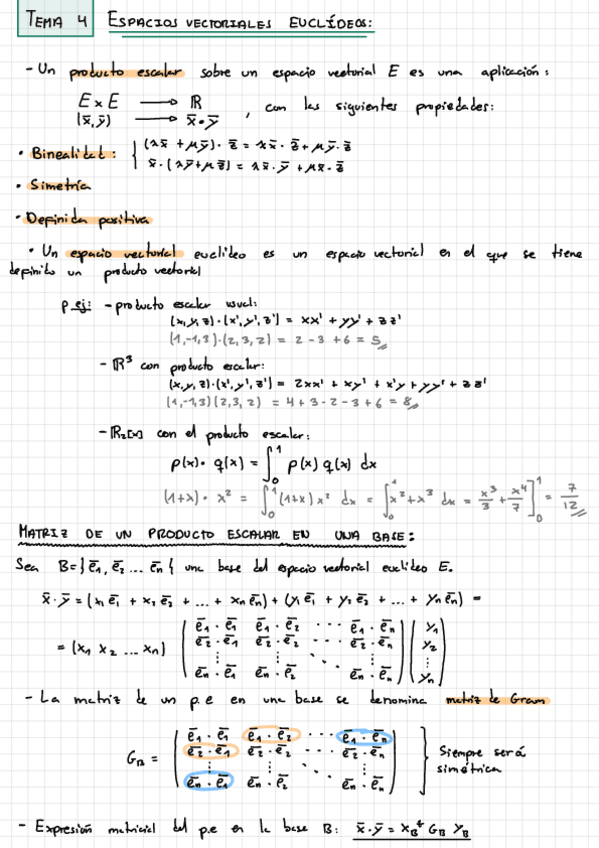 TEMA 4 ESPACIOS VECTORIALES EUCLÍDEOS:
- Un producto escalar sobre un espacio vectorial E es una aplicación:
E x E ⟶ ℝ
(x̄, ȳ) ⟶ x̄·ȳ , con las siguientes propiedades:
• Binealidad: { (λx̄ + μȳ)· z̄ = λx̄· z̄ + μȳ· z̄
x̄·(λȳ + μz̄) = λx̄·ȳ + μx̄·z̄
• Simetría
• Definida positiva
• Un espacio vectorial euclídeo es un espacio vectorial en el que se tiene
definido un producto vectorial
p.ej: - producto escalar usual:
(x,y,z)·(x',y',z') = xx' + yy' + zz'
(1,-1,3)·(2,3,2) = 2 - 3 + 6 = 5
- ℝ³ con producto escalar:
(x,y,z)·(x',y',z') = 2xx' + xy' + x'y + yy' + zz'
(1,-1,3)(2,3,2) = 4+3-2-3+6 = 8
- ℝ₂[x] con el producto escalar:
p(x)· q(x) = ∫₀¹ p(x) q(x) dx
(1+x)· x² = ∫₀¹ (1+x) x² dx = ∫₀¹ x²+x³ dx = x³/3 + x⁴/7 ]₀¹ = 7/12
MATRIZ DE UN PRODUCTO ESCALAR EN UNA BASE:
Sea B={ē₁, ē₂ ... ēn{ una base del espacio vectorial euclídeo E.
x̄·ȳ = (x₁ē₁ + x₂ē₂ + ... + xnēn) + (y₁ē₁ + y₂ē₂ + ... + ynēn) =
= (x₁ x₂ ... xn) ( ē₁·ē₁ ē₁·ē₂ ··· ē₁·ēn ) ( y₁ )
ē₂·ē₁ ē₂·ē₂ ··· ē₂·ēn y₂
⋮ ⋮ ⋱ ⋮ ⋮
ēn·ē₁ ēn·ē₂ ēn·ēn yn
- La matriz de un p.e en una base se denomina matriz de Gram
G_B = ( ē₁·ē₁ ē₁·ē₂ ··· ē₁·ēn )
ē₂·ē₁ ē₂·ē₂ ē₂·ēn } Siempre será
⋮ ⋮ ⋱ ⋮ simétrica
ēn·ē₁ ēn·ē₂ ēn·ēn
- Expresión matricial del p.e en la base B: x̄·ȳ = X_Bᵗ G_B Y_B